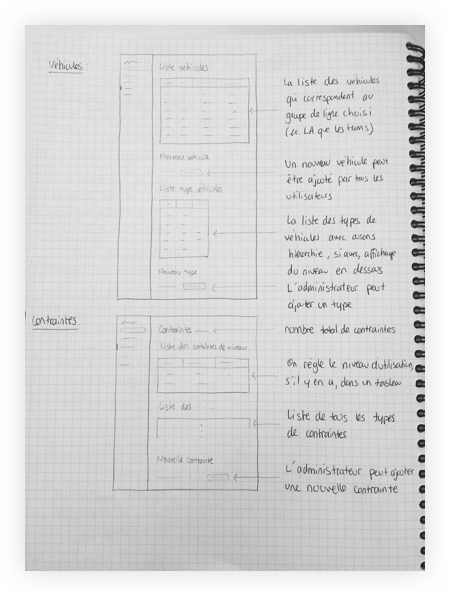 Véhicules:
Liste véhicules
La liste des véhicules
qui correspondent au
groupe de ligne choisi
(ex. LA que les trams)
Nouveau véhicule
Un nouveau véhicule peut
être ajouté par tous les
utilisateurs
Liste type véhicules
La liste des types de
véhicules avec
hiérarchie, si avec, affichage
du niveau en dessous
Nouveau type
L'administrateur peut
ajouter un type
Contraintes:
Contraintes
nombre total de contraintes
Liste des de niveau
On règle le niveau d'utilisation,
s'il y en a, dans un tableau
Liste des
Liste de tous les types
de contraintes
Nouvelle contrainte
L'administrateur peut ajouter
une nouvelle contrainte